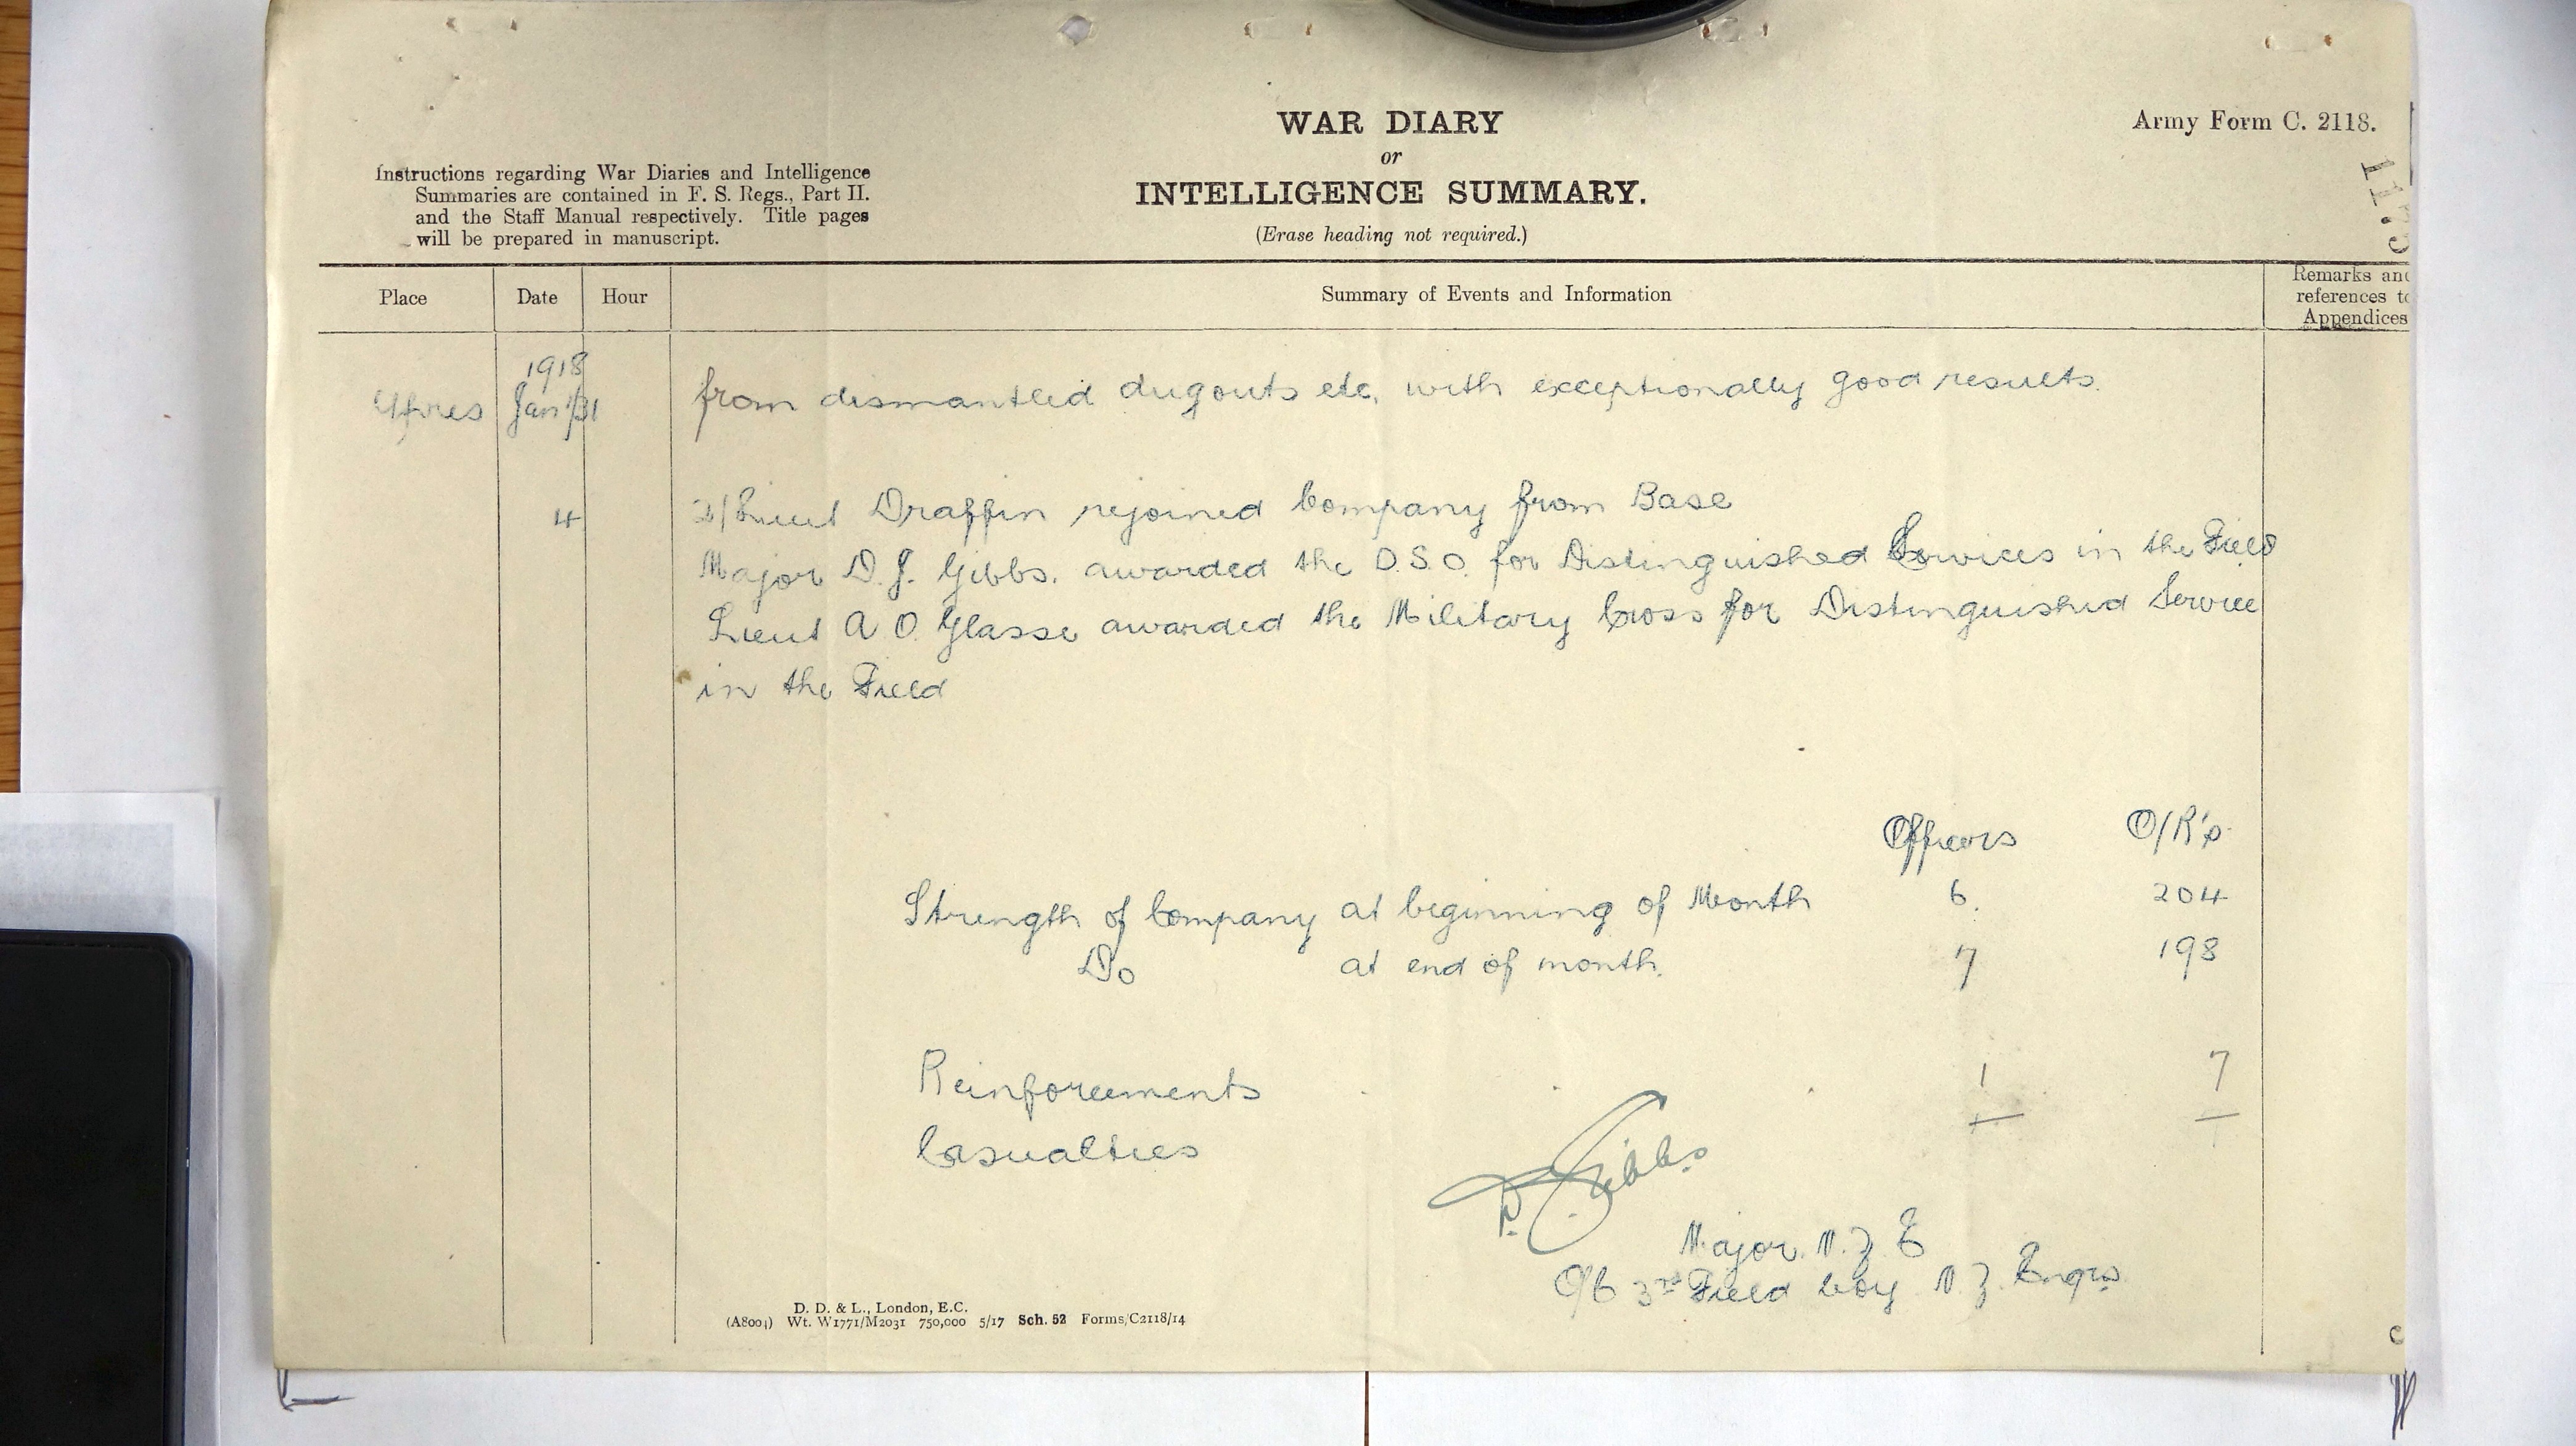 WAR DIARY
or
INTELLIGENCE SUMMARY.
(Erase heading not required.)
Army Form C. 2118.
Instructions regarding War Diaries and Intelligence
Summaries are contained in F. S. Regs., Part II.
and the Staff Manual respectively. Title pages
will be prepared in manuscript.
Place Date Hour Summary of Events and Information Remarks and
references to
Appendices
1918
Ypres Jan 1/31 from dismantled dugouts etc, with exceptionally good results.
4 2/Lieut Draffin rejoined Company from Base
Major D. J. Gibbs. awarded the D.S.O. for Distinguished Services in the Field
Lieut A O. Glasse awarded the Military Cross for Distinguished Service
in the Field
Officers O/R's
Strength of Company at beginning of Month 6. 204
Do at end of month. 7 198
Reinforcements 1 7
Casualties — —
D. Gibbs
Major. N. Z. E
O/C 3rd Field Coy N. Z. Engrs
D. D. & L., London, E.C.
(A8004) Wt. W1771/M2031 750,000 5/17 Sch. 52 Forms/C2118/14